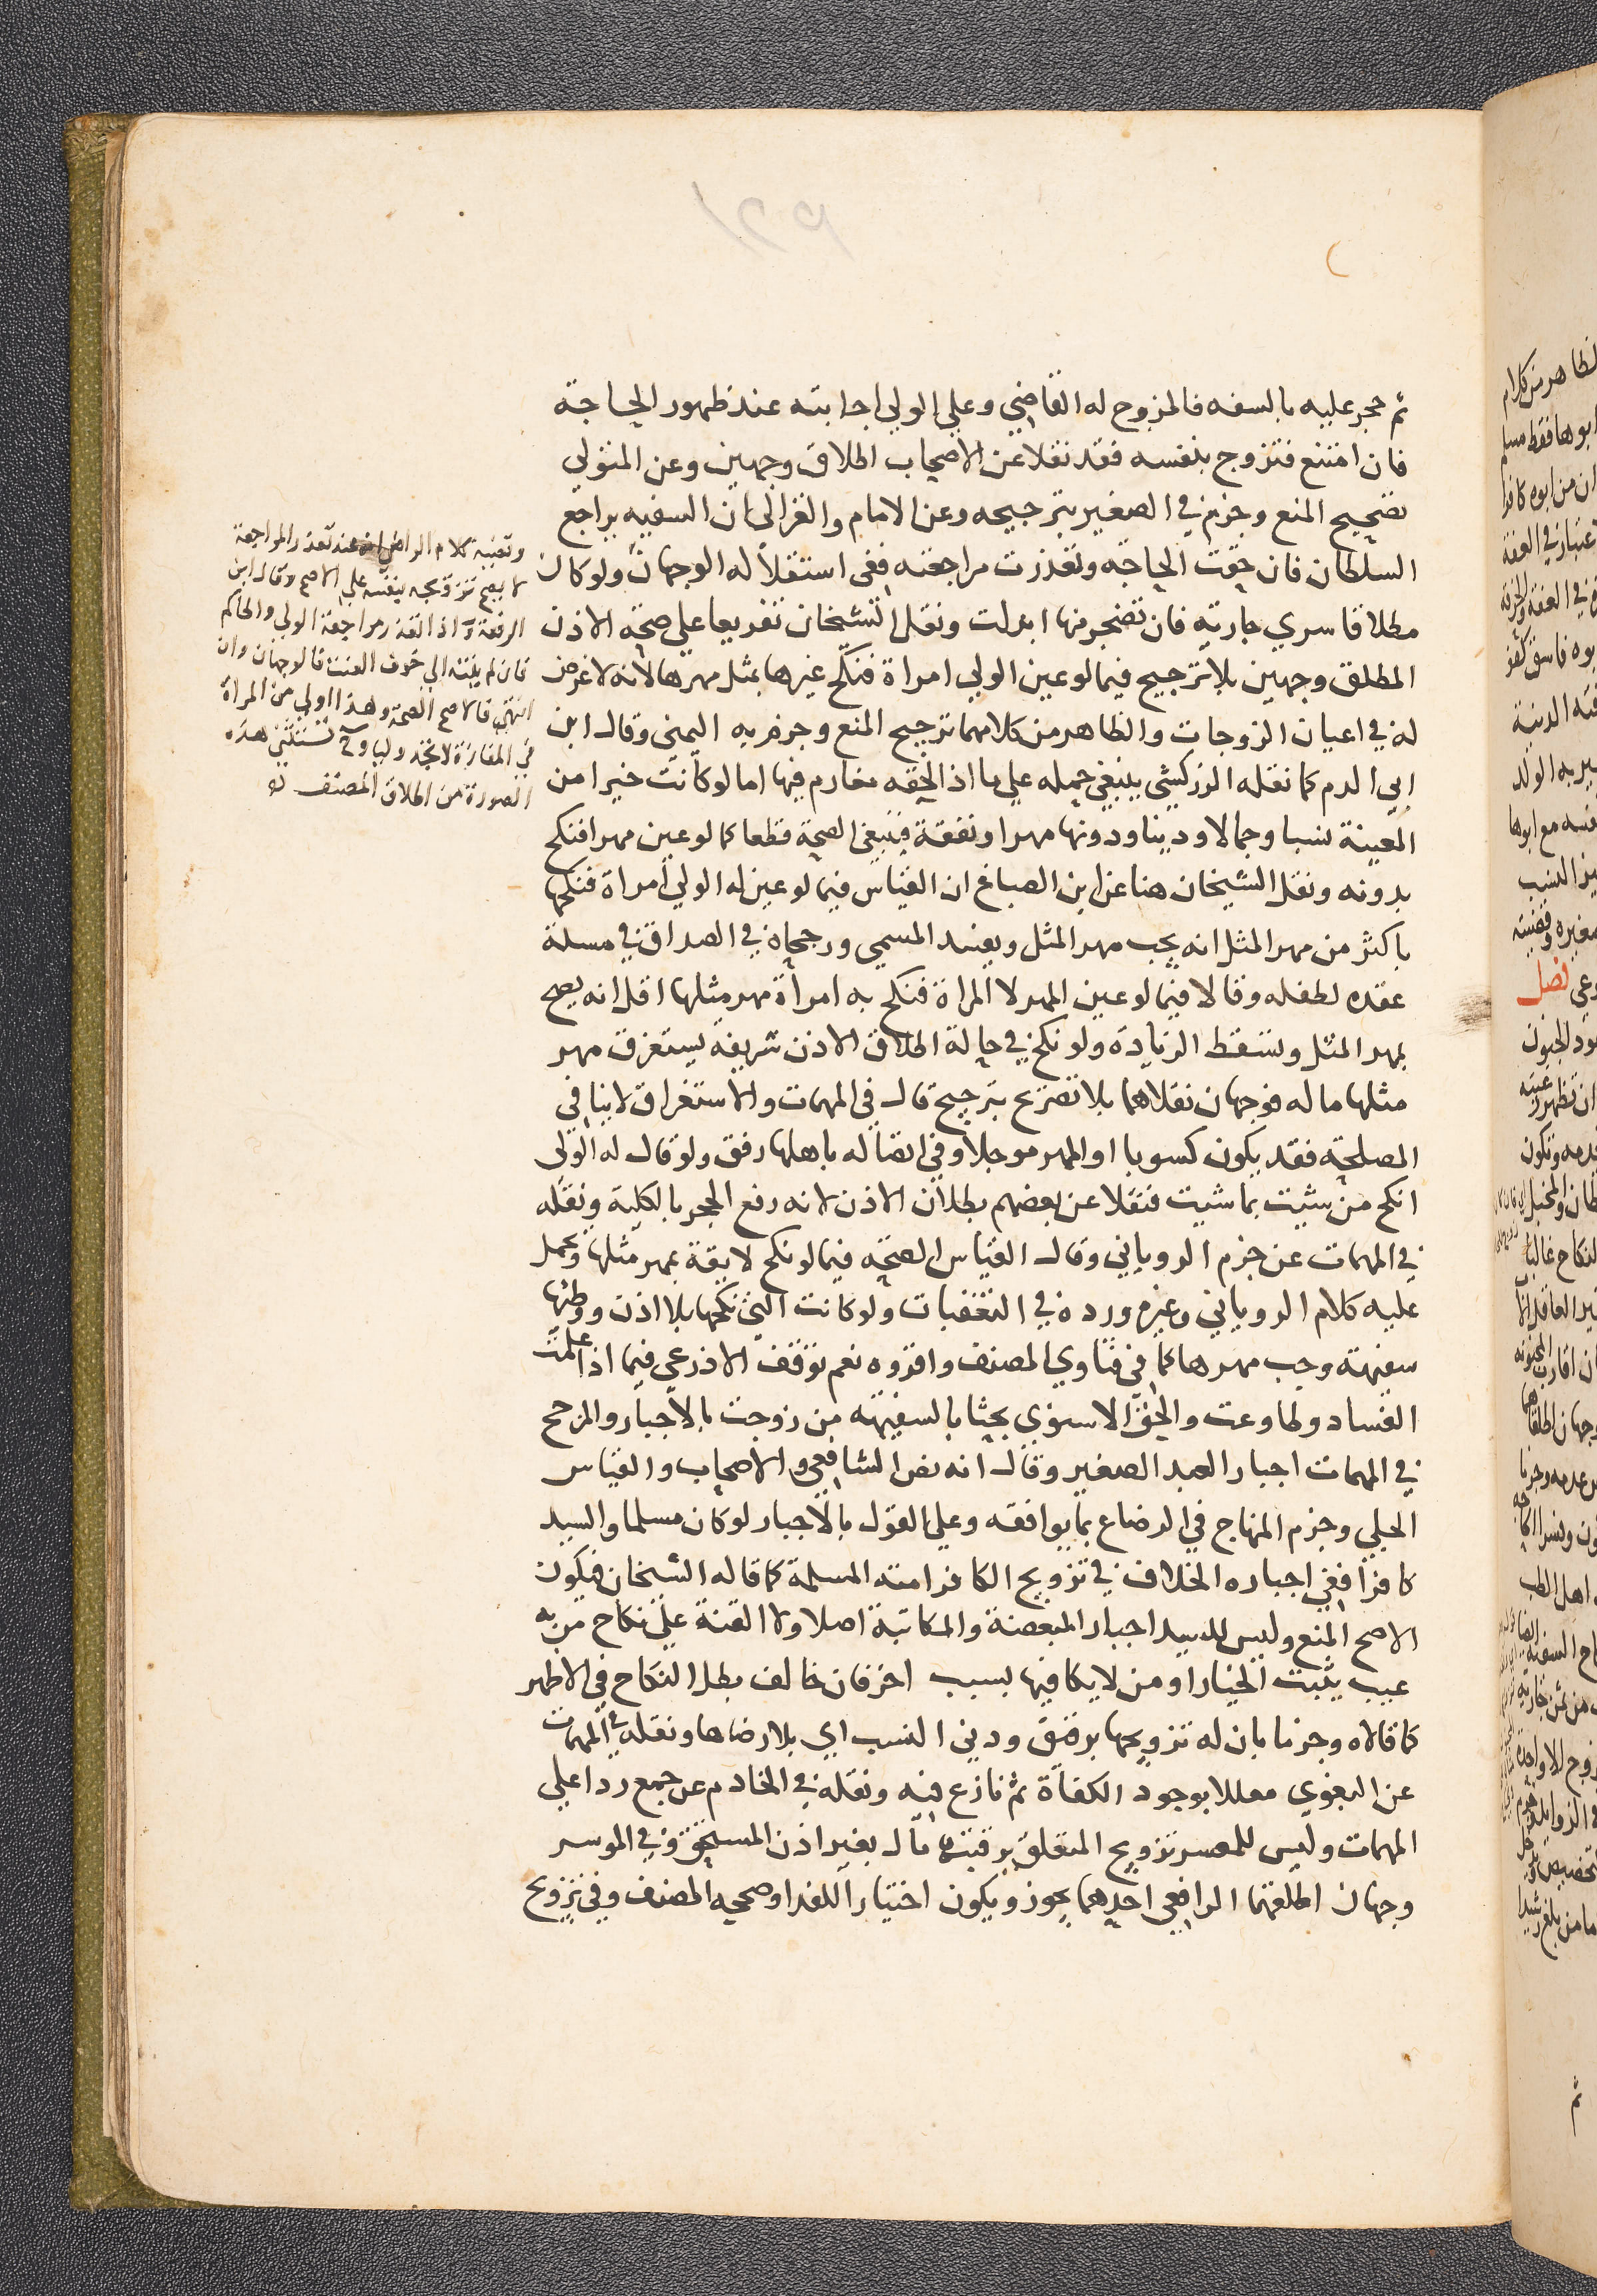 ثم حجر عليه بالسفه فالمزوج له القاضي وعلى الولي اجابته عند ظهور الحاجة
فان امتنع فتزوج بنفسه فقد نقلا عن الاصحاب اطلاق وجهين وعن المتولي
تصحيح المنع وجزم في الصغير بترجيحه وعن الامام والغزالي ان السفيه يراجع
السلطان فان حقت الحاجة وتعذرت مراجعته ففي استقلاله الوجهان ولو كان
مطلاقا سري جارية فان تضجر منها ابدلت ونقل الشيخان تفريعا على صحة الاذن
المطلق وجهين بلا ترجيح فيما لو عين الولي امراة فنكح غيرها بمثل مهرها لانه لا غرض
له في اعيان الزوجات والظاهر من كلامهما ترجيح المنع وجزم به اليمني وقال ابن
ابي الدم كما نقله الزركشي ينبغي حمله على ما اذا لحقه مغارم فيها اما لو كانت خيرا من
المعينة نسبا وجمالا ودينا ودونها مهرا ونفقة فينبغي الصحة قطعا كما لو عين مهرا فنكح
بدونه ونقل الشيخان هنا عن ابن الصباغ ان القياس فيما لو عين له الولي امراة فنكحها
باكثر من مهر المثل انه يجب مهر المثل ويفسد المسمى ورجحاه في الصداق في مسلة
عقده لطفله وقالا فيما لو عين المهر لا المراة فنكح به امراة مهر مثلها اقل انه يصح
بمهر المثل وتسقط الزيادة ولو نكح في حالة اطلاق الاذن شريفة يستغرق مهر
مثلها ماله فوجهان نقلاهما بلا تصريح بترجيح قال في المهمات والاستغراق لا ينافي
المصلحة فقد يكون كسوبا او المهر موجلا وفي اتصاله باهلها رفق ولو قال له الولي
انكح من شيت بما شيت فنقلا عن بعضهم بطلان الاذن لانه رفع الحجر بالكلية ونقله
في المهمات عن جزم الروياني وقال القياس الصحة فيما لو نكح لايقة بمهر مثلها ويحمل
عليه كلام الروياني وغيره ورده في التعقبات ولو كانت التي نكحها بلا اذن ووطئها
سفيهة وجب مهرها كما في فتاوي المصنف واقروه نعم توقف الاذرعي فيما اذا علمت
الفساد وطاوعت والحق الاسنوي بحثا بالسفيهة من زوجت بالاجبار والمرجح
في المهمات اجبار العبد الصغير وقال انه نص الشافعي والاصحاب والقياس
الجلي وجزم المنهاج في الرضاع بما يوافقه وعلى القول بالاجبار لو كان مسلما والسيد
كافرا ففي اجباره الخلاف في تزويج الكافر امته المسلمة كما قاله الشيخان فيكون
الاصح المنع وليس للسيد اجبار المبعضة والمكاتبة اصلا ولا القنة على نكاح من به
عيب يثبت الخيار او من لا يكافيها بسبب اخر فان خالف بطل النكاح في الاظهر
كما قالاه وجزما بان له تزويجها برقيق ودني النسب اي بلا رضاها ونقله في المهمات
عن البغوي معللا بوجود الكفاة ثم نازع فيه ونقله في الخادم عن جمع ردا على
المهمات وليس للمعسر تزويج المتعلق برقبتها مال بغير اذن المستحق وفي الموسر
وجهان اطلقهما الرافعي احدهما يجوز ويكون اختيارا للفدا وصححه المصنف وفي تزويج
وقضية كلام الرافعي انه عند تعذر المراجعة
لا يصح تزويجه بنفسه على الاصح وقال ابن
الرفعة اذا تعذر مراجعة الولي والحاكم
فان لم ينته الى خوف العنت فالوجهان وان
انتهى فالاصح الصحة وهذا اولى من المراة
في المفازة لا تجد وليا وتستثنى هذه
الصورة من اطلاق المصنف